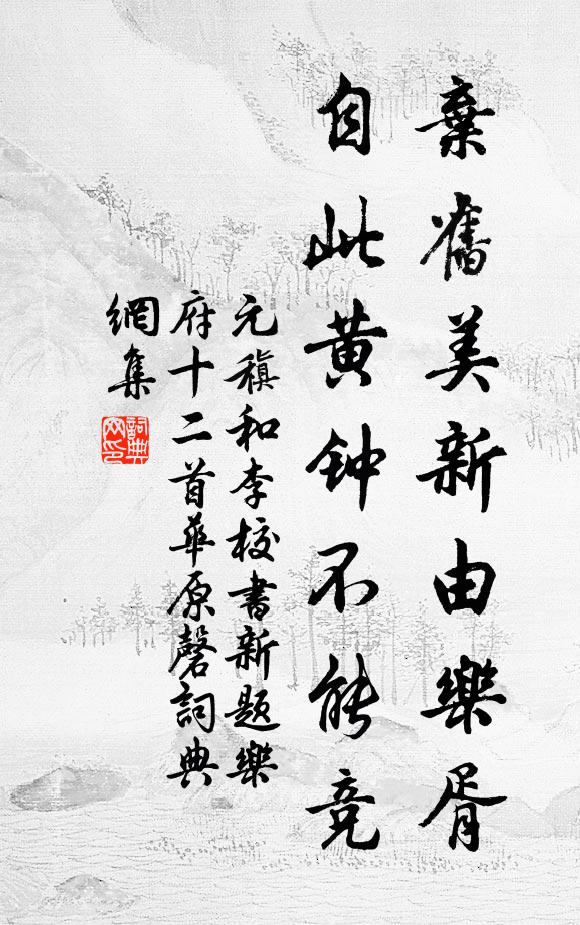 棄舊美新由樂胥
自此黃钟不能竞
元稹和李校書新題樂
府十二首華原磬詞典
網集
詞典
网印